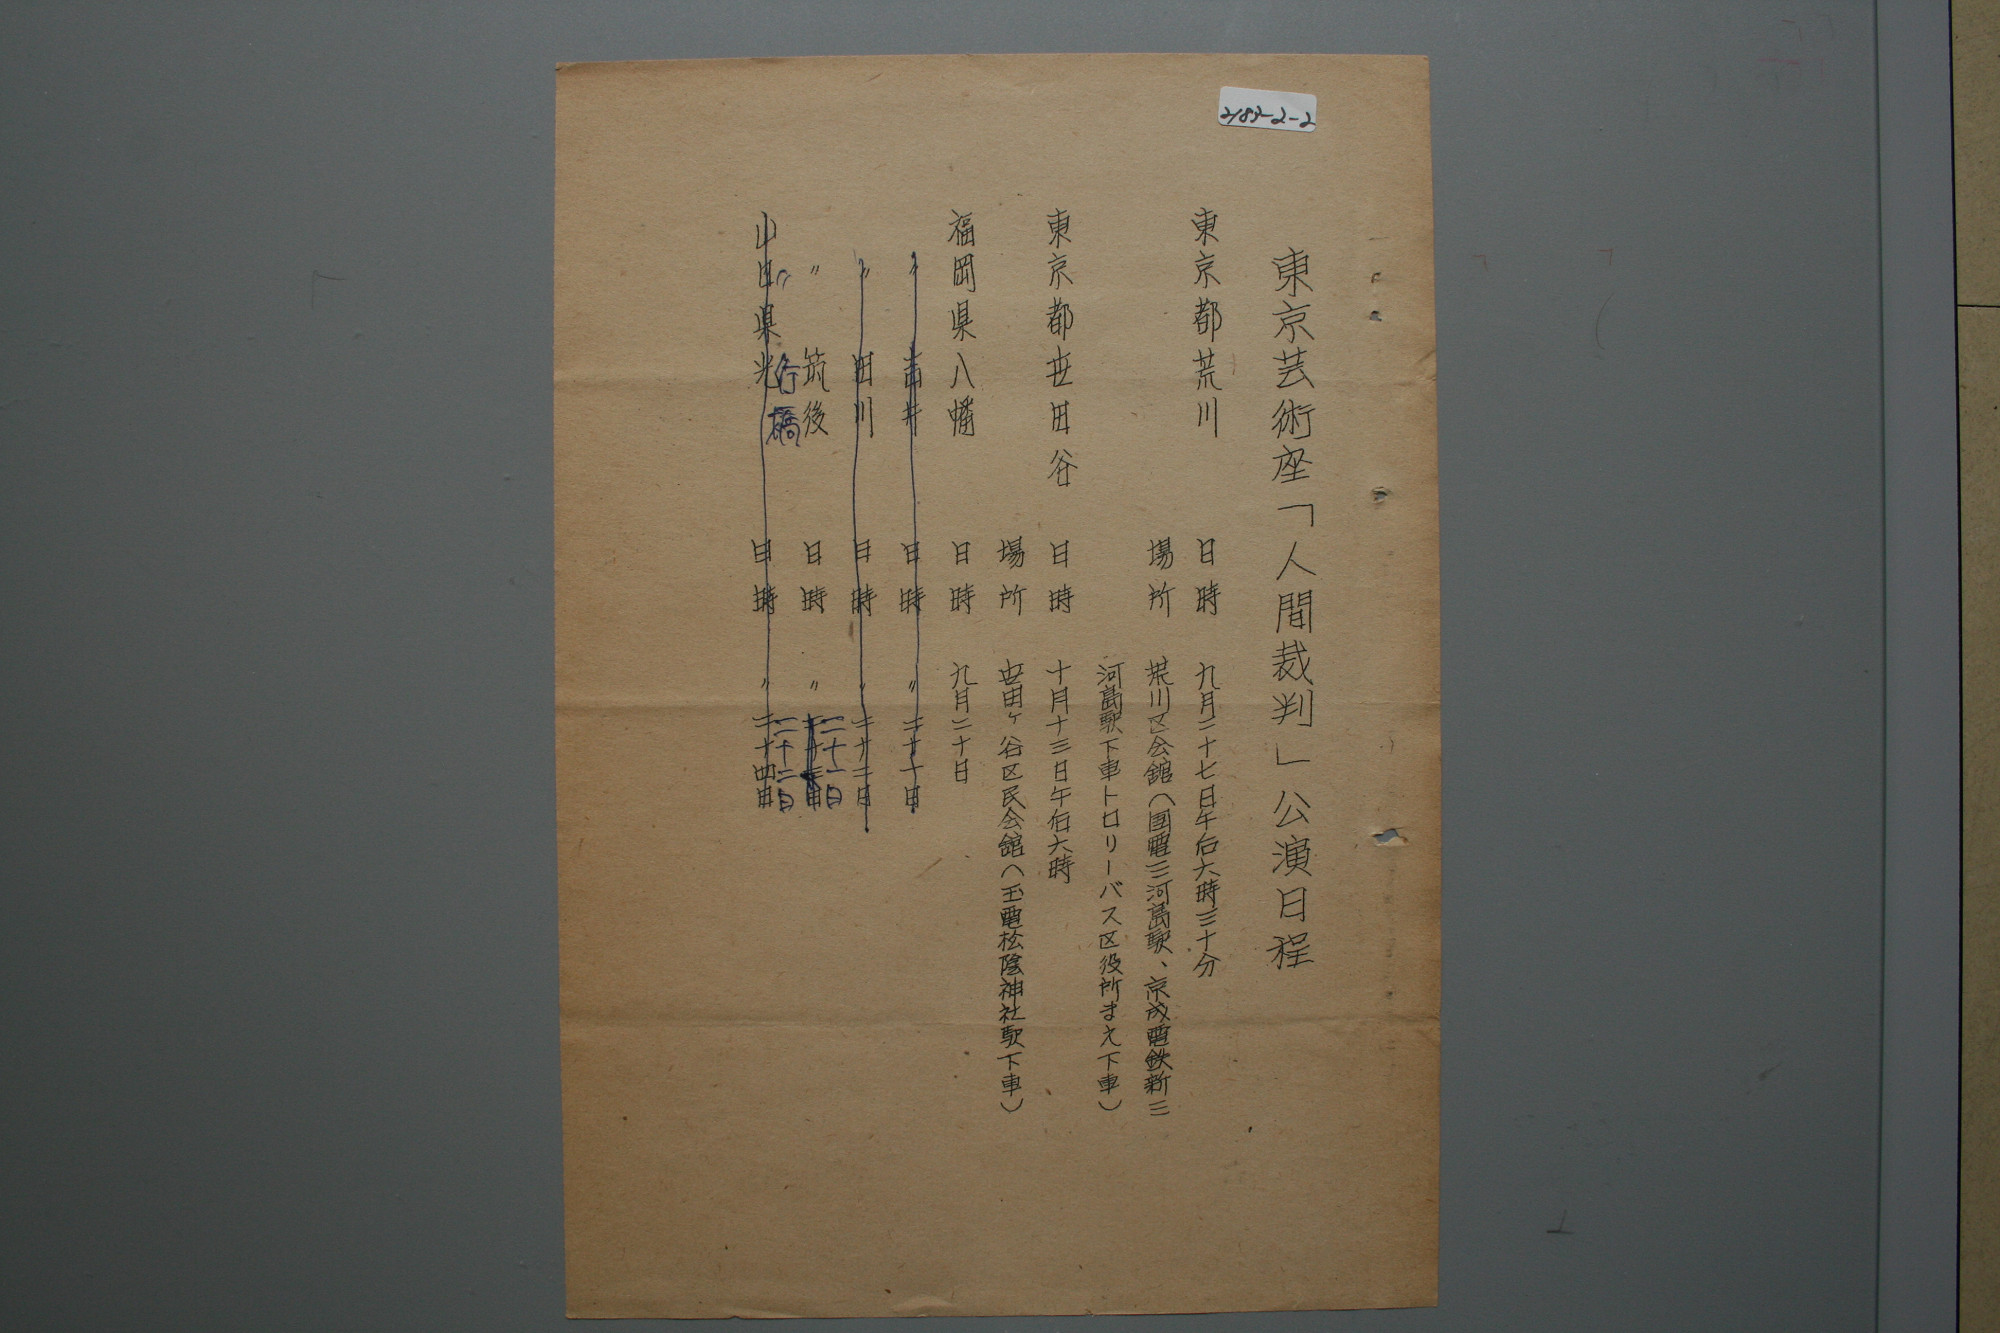 2183-2-2
東京芸術座「人間裁判」公演日程
東京都荒川 日時 九月二十七日午后六時三十分
場所 荒川区会舘(国電三河島駅、京成電鉄新三
河島駅下車トロリーバス区役所まえ下車)
東京都世田谷 日時 十月十三日午后六時
場所 世田ヶ谷区民会舘(玉電松陰神社駅下車)
福岡県八幡 日時 九月二十日
〃 日時 〃 二十一日
〃 田川 日時 〃 二十二日
〃 筑後 日時 〃 二十一日
〃 行橋 二十二日
山口県光 日時 〃 二十四日